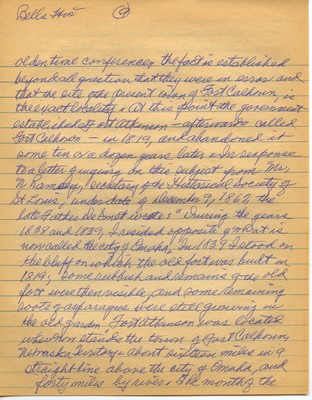 Bells His
9
olden time conferences the fact is established
beyond all question that they were in error and
that the site of the present town of Fort Calhoun, is
the exact locality. At this point the government
established Fort Atkinson — afterwards called
Fort Calhoun — in 1819, and abandoned it
some ten or a dozen years later. In response
to a letter of inquiry on this subject from Mr.
W Ramsey, Secretary of the Historical Society of
St Louis, under date of December 9, 1867 the
late Father DeSmet wrote: "During the years
1838 and 1839, I resided opposite of what is
now called the city of Omaha. In 1839 I stood on
the bluff on which the old fort was built in
1819; some rubbish and remains of the old
fort were then visible, and some remaining
roots of asparagus were still growing in
the old garden. Fort Atkinson was located
where now stands the town of Fort Calhoun,
Nebraska Territory - about sixteen miles in a
straight line above the city of Omaha, and
forty miles by river. The month of the